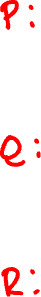 P:
Q:
R: